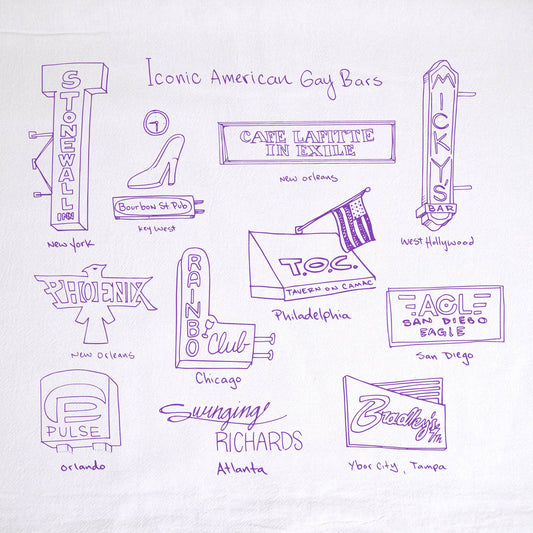 Iconic American Gay Bars
STONEWALL
INN
New York
Bourbon St Pub
Key West
CAFE LAFITTE
IN EXILE
New Orleans
MICKY'S
BAR
West Hollywood
PHOENIX
New Orleans
RAINBO
Club
Chicago
T.O.C.
TAVERN ON CAMAC
Philadelphia
EAGL
SAN DIEGO
EAGLE
San Diego
PULSE
Orlando
Swinging
RICHARDS
Atlanta
Bradley's
Ybor City, Tampa